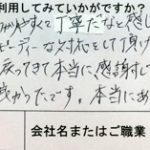 利用してみていかがですか？
りやすくて丁寧だなと感し
ピーディーな対応をして頂け
戻ってきて本当に感謝して
良かったです。本当にあ
会社名またはご職業